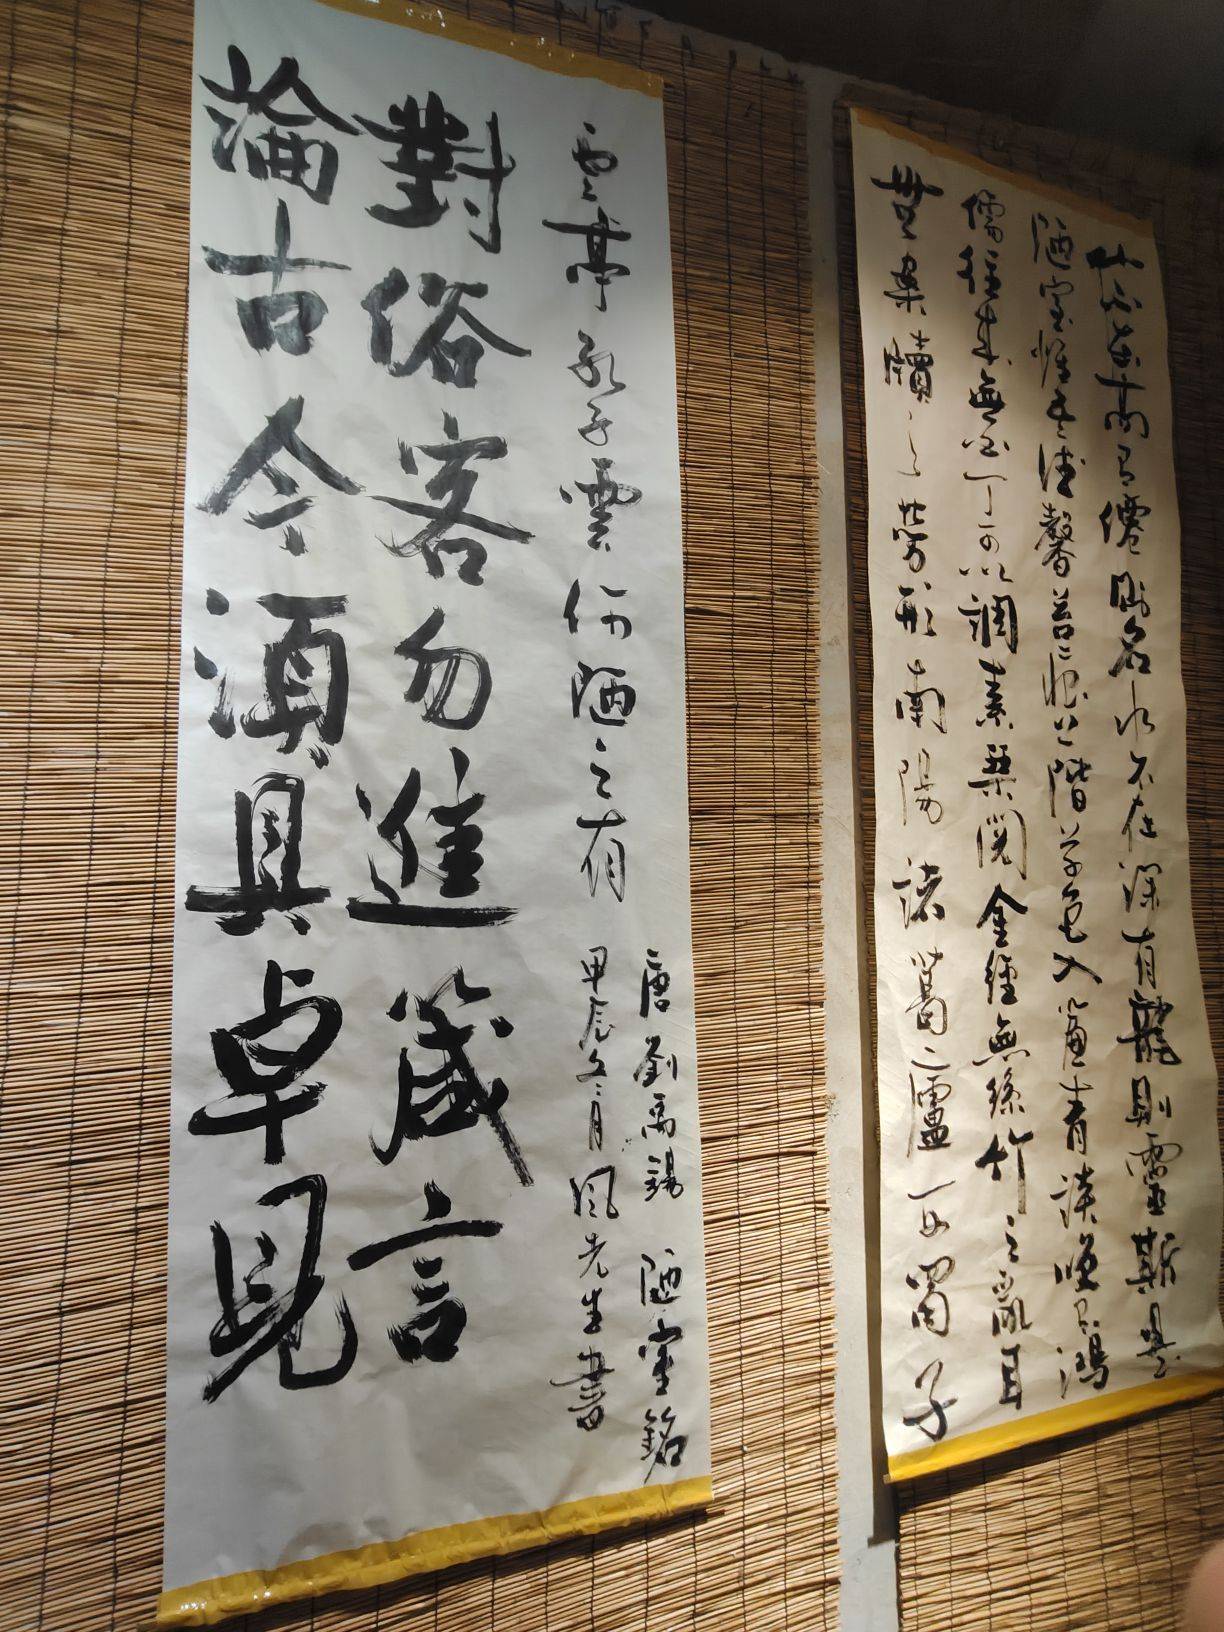 山不在高有僊則名水不在深有龍則靈斯是
陋室惟吾德馨苔痕上階草色入簾青談唉有鴻
儒往來無白丁可以調素琴閱金經無絲竹之亂耳
無案牘之勞形南陽諸葛之廬西蜀子
雲亭孔子雲何陋之有
唐劉禹錫 陋室銘
甲辰年二月風先生書
對俗客勿進箴言
論古今須具卓見